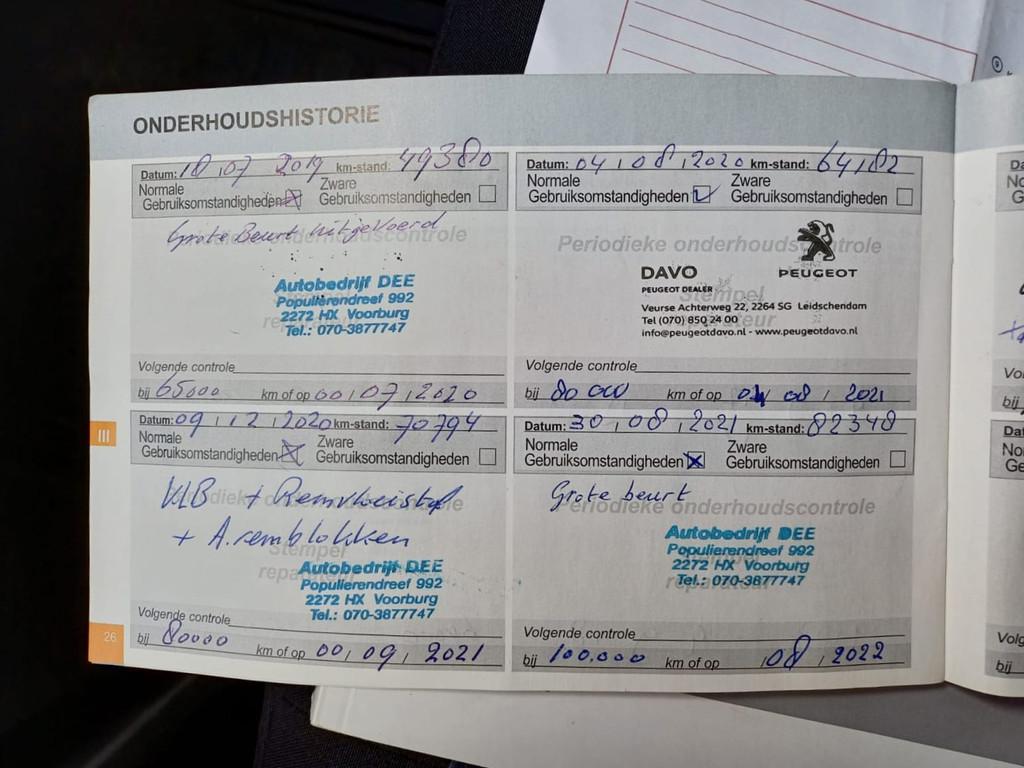 ONDERHOUDSHISTORIE
Datum: 18,07 2019 km-stand: 49380
Normale Gebruiksomstandigheden Zware Gebruiksomstandigheden
Grote Beurt uitgevoerd
Periodieke onderhoudscontrole
Autobedrijf DEE
Populierendreef 992
2272 HX Voorburg
Tel.: 070-3877747
Volgende controle
bij 65000 km of op 00,07,2020
Datum: 04,08,2020 km-stand: 64,182
Normale Gebruiksomstandigheden Zware Gebruiksomstandigheden
Periodieke onderhoudscontrole
Stempel
reparateur
DAVO
PEUGEOT DEALER
PEUGEOT
Veurse Achterweg 22, 2264 SG Leidschendam
Tel (070) 850 24 00
info@peugeotdavo.nl - www.peugeotdavo.nl
Volgende controle
bij 80 000 km of op 04 08, 2021
III
Datum: 09,12,2020 km-stand: 70794
Normale Gebruiksomstandigheden Zware Gebruiksomstandigheden
Periodieke onderhoudscontrole
+ Remvloeistof
+ A.remblokken
Stempel
reparateur
Autobedrijf DEE
Populierendreef 992
2272 HX Voorburg
Tel.: 070-3877747
Volgende controle
bij 80000 km of op 00,09,2021
26
Datum: 30,08,2021 km-stand: 82348
Normale Gebruiksomstandigheden Zware Gebruiksomstandigheden
Grote beurt
Periodieke onderhoudscontrole
Autobedrijf DEE
Populierendreef 992
2272 HX Voorburg
Tel.: 070-3877747
Volgende controle
bij 100.000 km of op ,08,2022